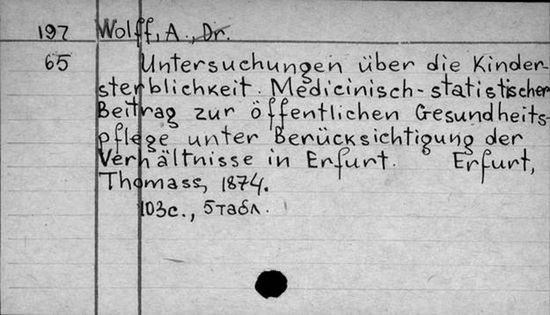 197 Wolff, A., Dr.
65 Untersuchungen über die Kinder-
sterblichkeit. Medicinisch-statistischer
Beitrag zur öffentlichen Gesundheits-
pflege unter Berücksichtigung der
Verhältnisse in Erfurt. Erfurt,
Thomass, 1874.
103с., 5табл.